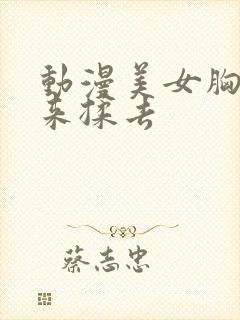 動漫美女胸
来揉去
蔡志忠